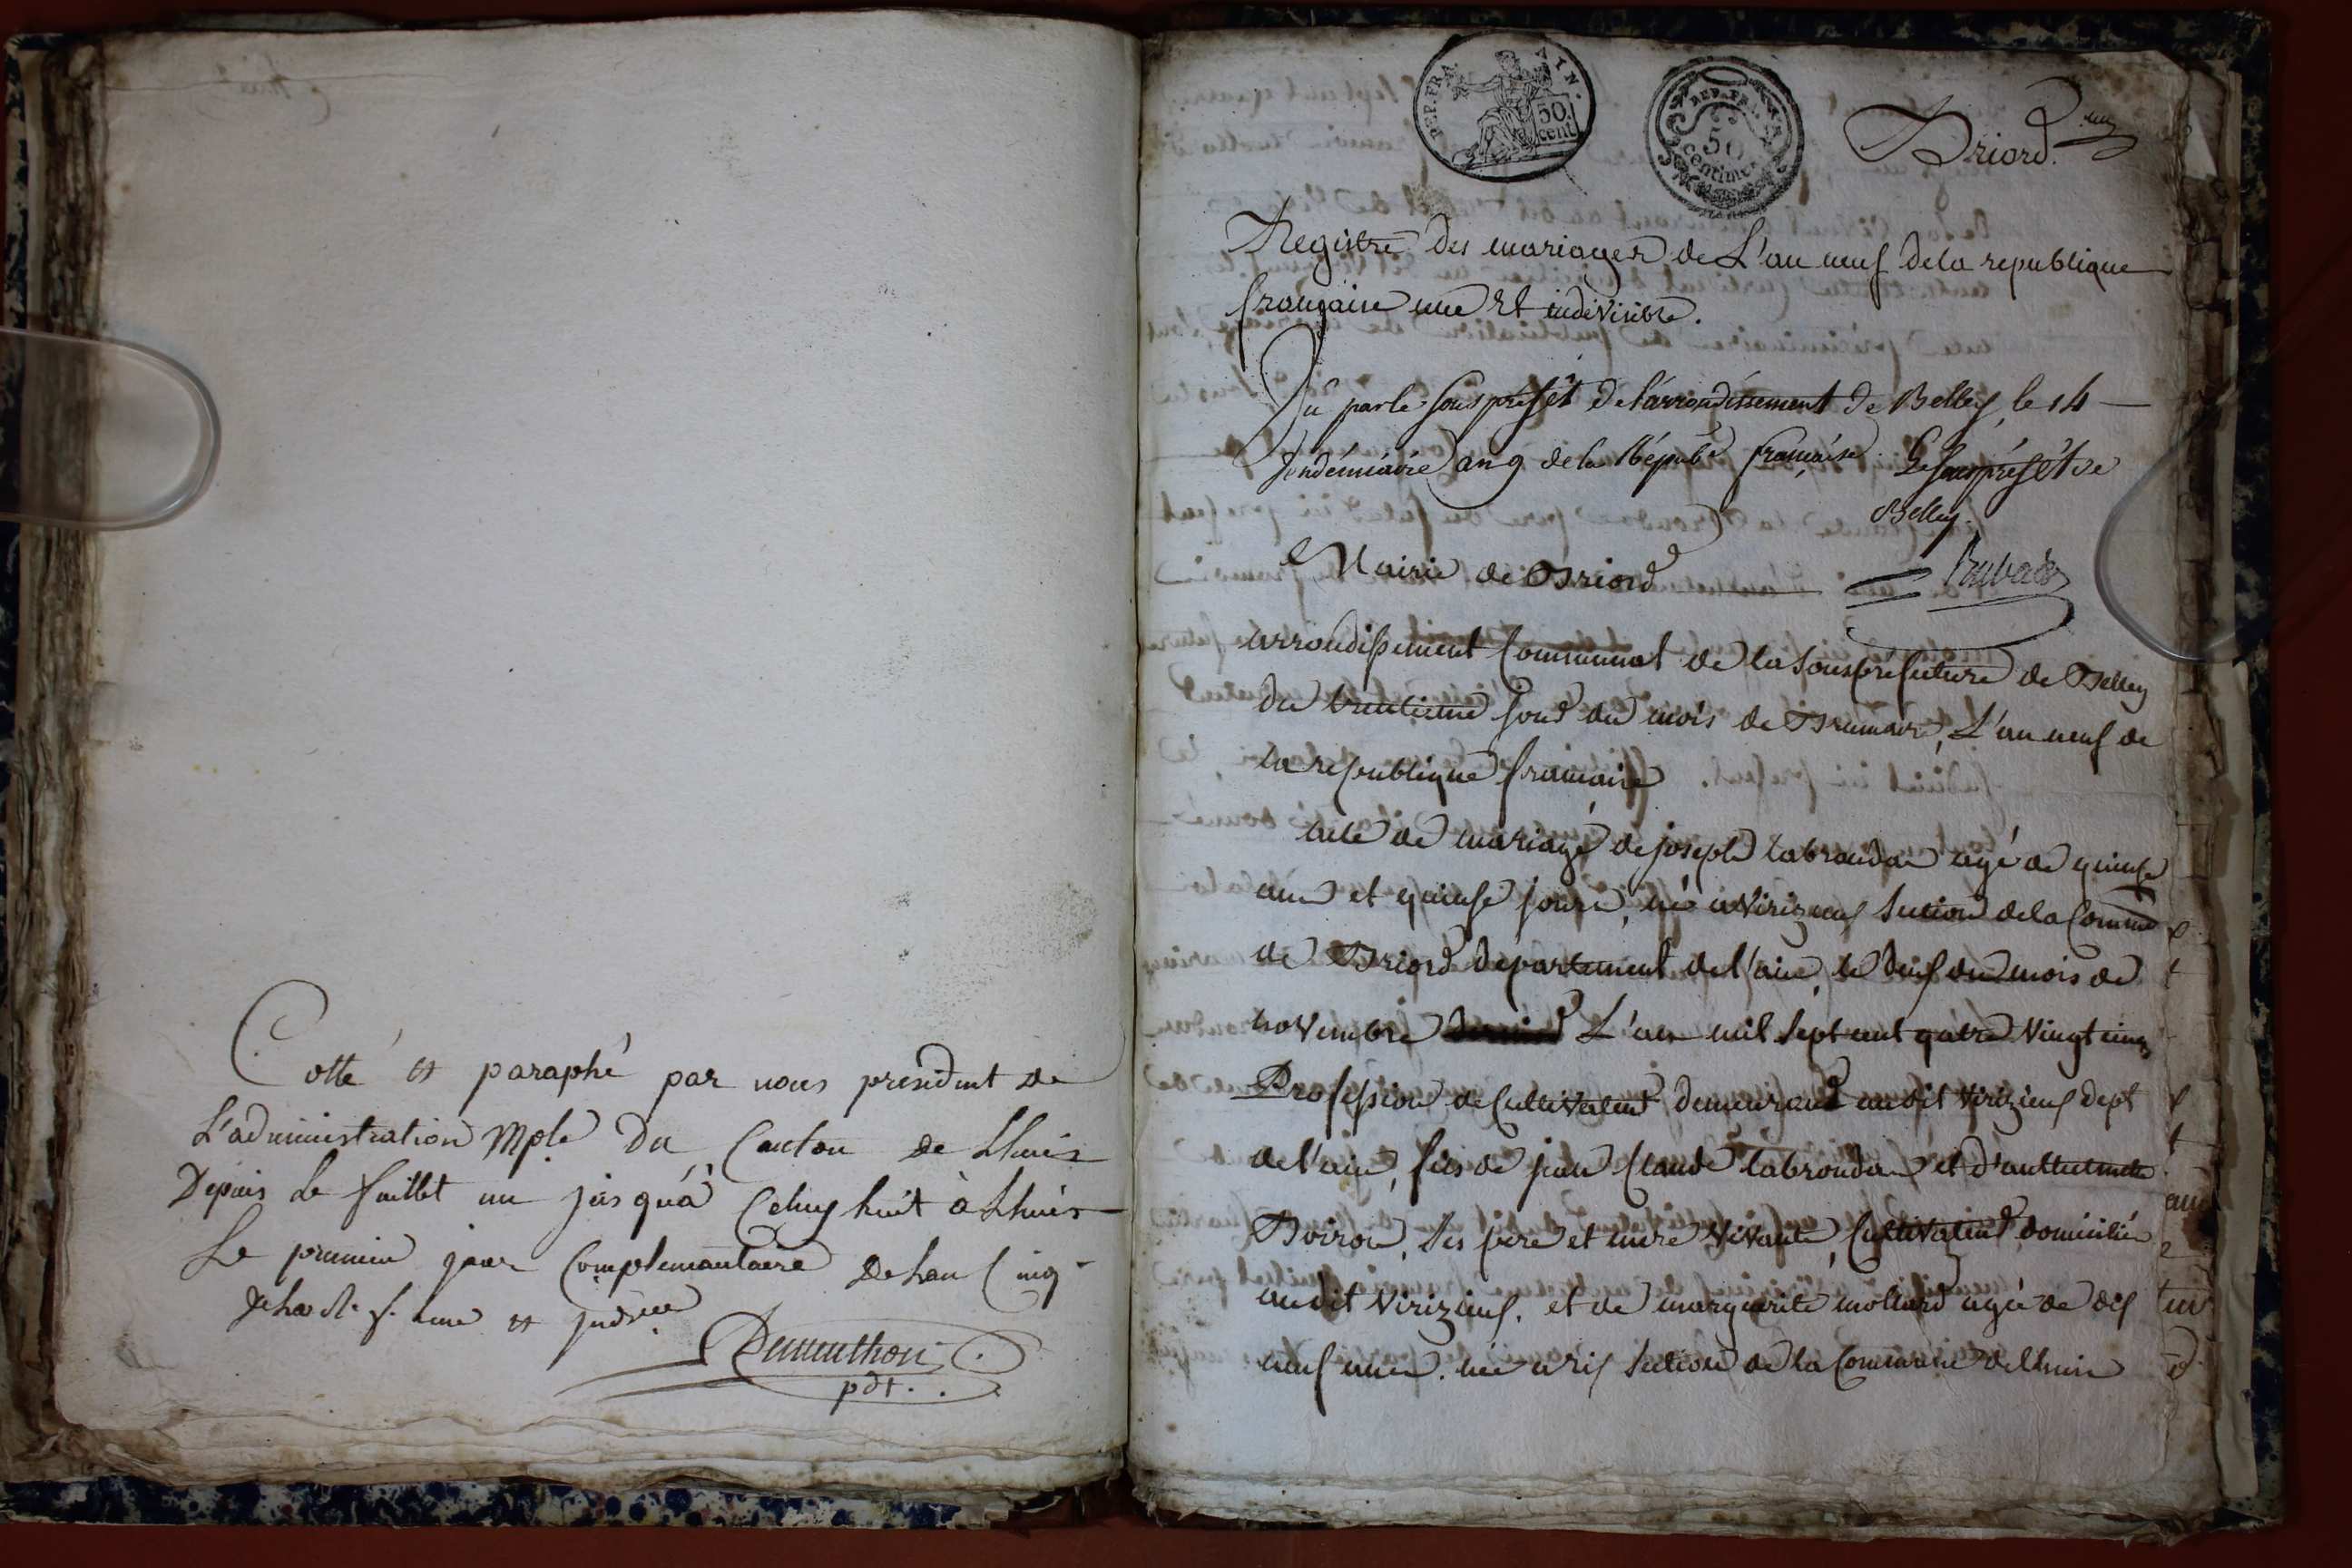 Cotté et paraphé par nous president de
L'administration Mple Du Canton de Lhuis
Depuis Le feuillet un jusqu'à Celuy huit à Lhuis
Le premier jour Complementaire de Lan Cinq
de la R. f. une et
Demuthon
pdt.
REP. FRA. AIN.
50 cent
REP. FRA.
50 centimes
Briord.
Registre des mariages de L'an neuf de la republique
française une Et indivisible.
Vu par le sous préfet de l'arrondissement de Belley, le 14
Vendémiaire an 9 de la Répube française. Le sous préfet de
Belley.
Mairie de Briord
arrondissement Communal de la Sousprefecture de Belley
du trentieme jour du mois de Brumaire, L'an neuf de
la republique francaise
acte de mariage de joseph labrondan agé de quinse
ans et quinse jours, né a Virizeuf Section de la Commune
de Briord departement de l'ain, le deux du mois de
novembre L'an mil Sept cent quatre Vingt cinq
Profession de Cultivateur demeurant au dit Virizieuf dept
de l'ain, fils de jean Claude labrondan et d'anthelmette
Boiron, Ses pere et mere Vivants, Cultivateurs domiciliés
au dit Virizieuf. et de marguerite mollard agée de dix
neuf ans. née a rix Section de la Commune de Lhuis